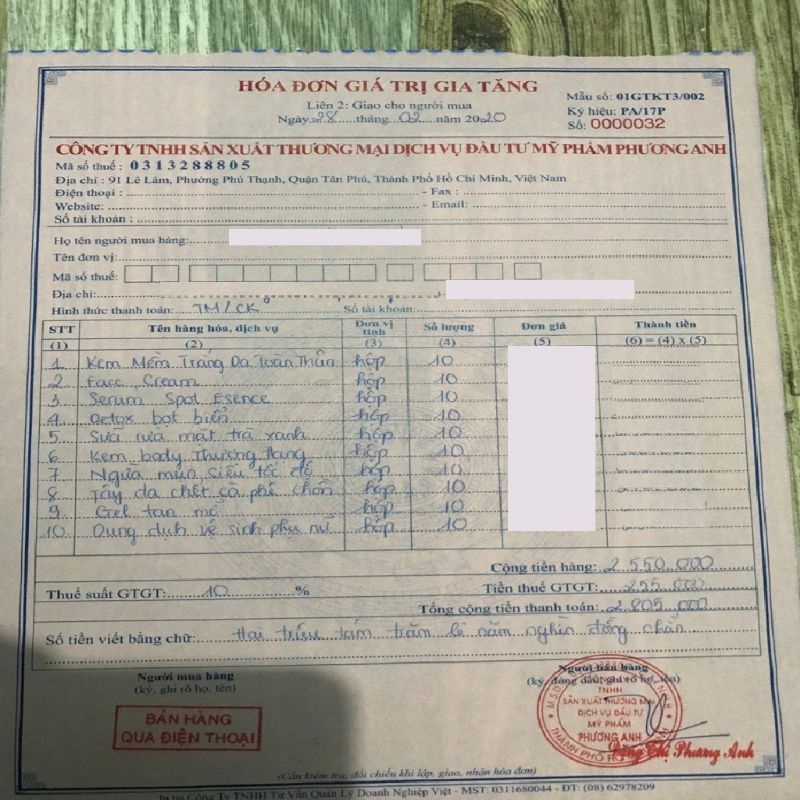 HÓA ĐƠN GIÁ TRỊ GIA TĂNG
Liên 2: Giao cho người mua
Ngày 28 tháng 02 năm 2020
Mẫu số: 01GTKT3/002
Ký hiệu: PA/17P
Số: 0000032
CÔNG TY TNHH SẢN XUẤT THƯƠNG MẠI DỊCH VỤ ĐẦU TƯ MỸ PHẨM PHƯƠNG ANH
Mã số thuế: 0313288805
Địa chỉ: 91 Lê Lâm, Phường Phú Thạnh, Quận Tân Phú, Thành Phố Hồ Chí Minh, Việt Nam
Điện thoại: - Fax:
Website: - Email:
Số tài khoản:
Họ tên người mua hàng:
Tên đơn vị:
Mã số thuế:
Địa chỉ:
Hình thức thanh toán: TM/CK Số tài khoản:
STT Tên hàng hóa, dịch vụ Đơn vị tính Số lượng Đơn giá Thành tiền
(1) (2) (3) (4) (5) (6) = (4) x (5)
1 Kem Mềm Trắng Da Toàn Thân hộp 10
2 Face Cream hộp 10
3 Serum Spot Esence hộp 10
4 Detox bọt biển hộp 10
5 Sữa rửa mặt trà xanh hộp 10
6 Kem body Thượng Hạng hộp 10
7 Ngừa mụn siêu tốc độ hộp 10
8 Tẩy da chết cà phê chồn hộp 10
9 Gel tan mỡ hộp 10
10 Dung dịch vệ sinh phụ nữ hộp 10
Cộng tiền hàng: 2.550.000
Thuế suất GTGT: 10 % Tiền thuế GTGT: 255.000
Tổng cộng tiền thanh toán: 2.805.000
Số tiền viết bằng chữ: Hai triệu tám trăm lẻ năm nghìn đồng chẵn
Người mua hàng
(ký, ghi rõ họ, tên)
Người bán hàng
(ký, đóng dấu, ghi rõ họ, tên)
BÁN HÀNG
QUA ĐIỆN THOẠI
TNHH
SẢN XUẤT THƯƠNG MẠI
DỊCH VỤ ĐẦU TƯ
MỸ PHẨM
PHƯƠNG ANH
Thị Phương Anh
(Cần kiểm tra, đối chiếu khi lập, giao, nhận hóa đơn)
In tại Công Ty TNHH Tư Vấn Quản Lý Doanh Nghiệp Việt - MST: 0311680044 - ĐT: (08) 62978209